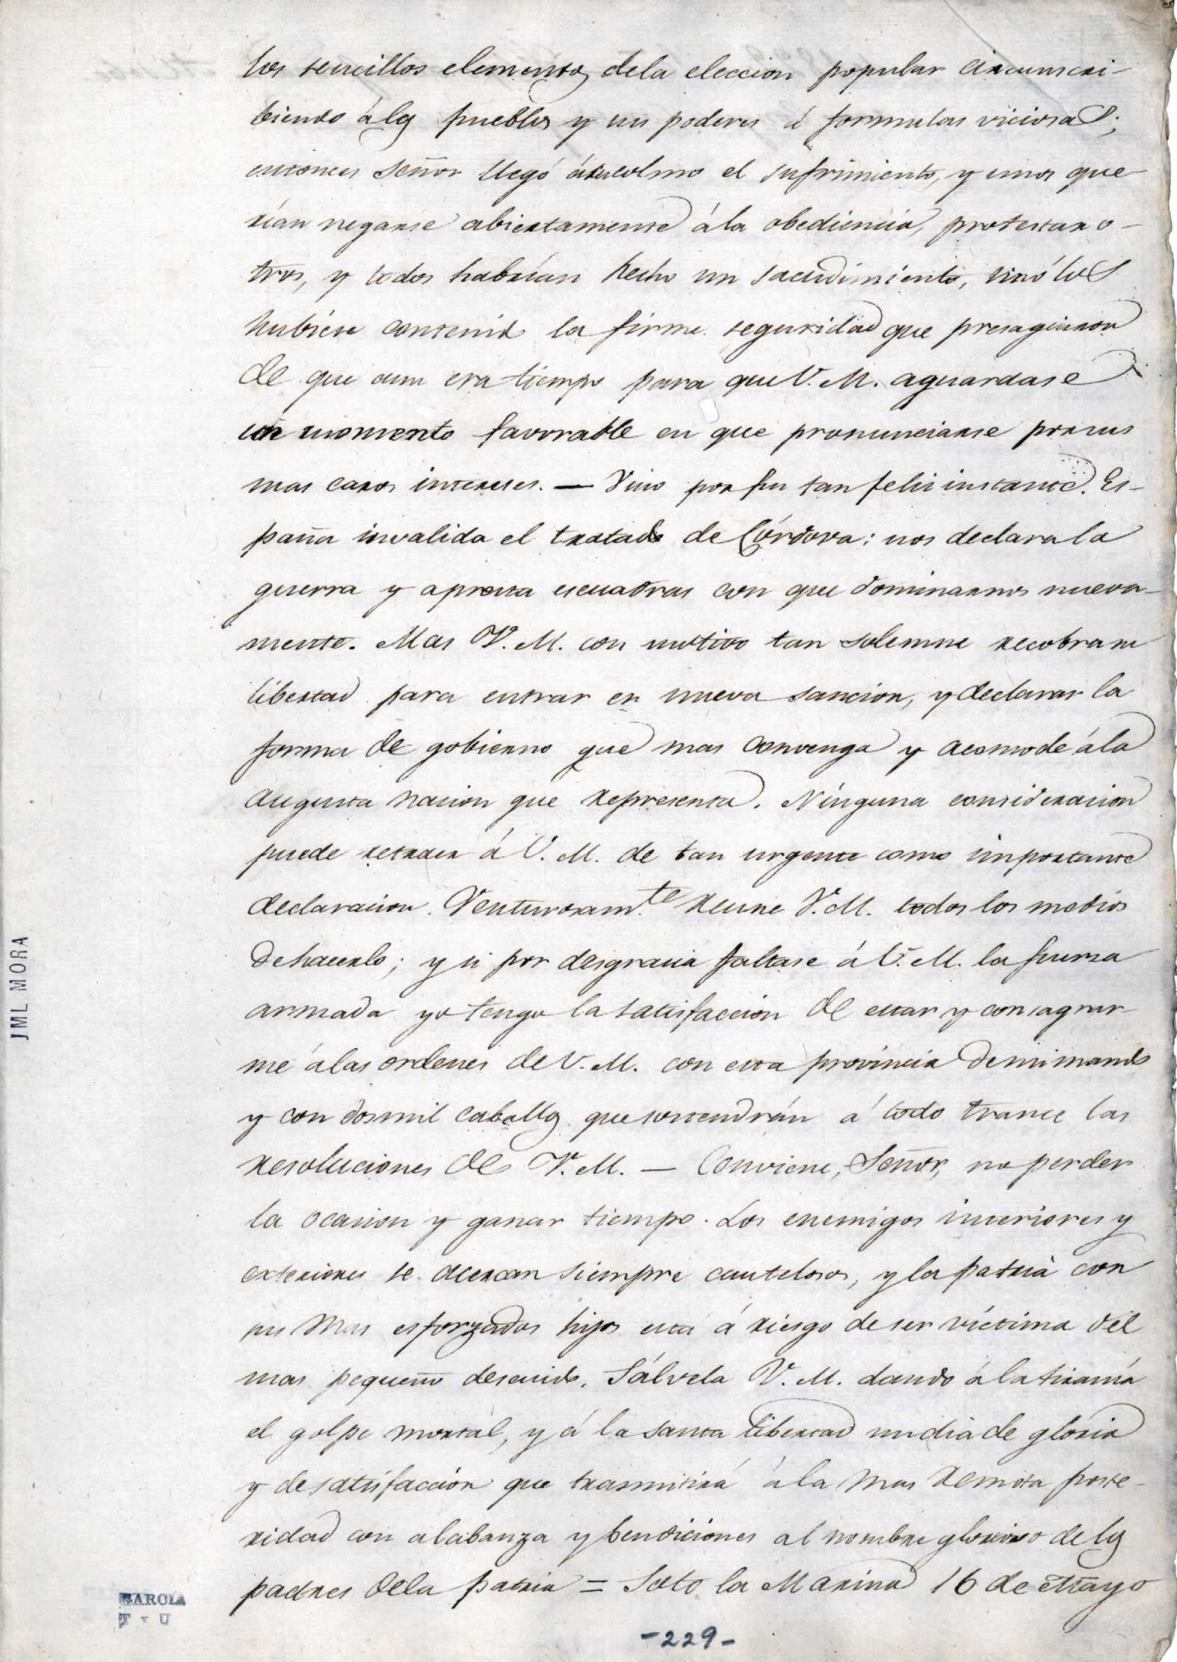 los sencillos elementos dela eleccion popular circunscri-
biendo álos pueblos y sus poderes á formulas viciosas;
entonces señor llegó ásucolmo el sufrimiento, y unos que
rian negarse abiertamente ála obediencia, protestar o-
tros, y todos habrian hecho un sacudimiento, sinó los
hubiese contenido la firme seguridad que presagiaron
de que aun era tiempo para que V. M. aguardase
un momento favorable en que pronunciarse por sus
mas caros intereses. — Vino por fin tan feliz instante. Es-
paña invalida el tratado de Córdova: nos declara la
guerra y apresta escuadras con que dominarnos nueva-
mente. Mas V. M. con motivo tan solemne recobra su
libertad para entrar en nueva sancion, y declarar la
forma de gobierno que mas convenga y acomode ála
augusta nacion que representa. Ninguna consideracion
puede retraer á V. M. de tan urgente como importante
declaracion. Venturosamte reune V. M. todos los medios
de hacerlo; y si por desgracia faltase á V. M. la fuerza
armada yo tengo la satisfaccion de estar y consagrar
me álas ordenes de V. M. con esta provincia demimando
y con dosmil caballos que sostendrán á todo trance las
resoluciones de V. M. — Conviene, Señor, no perder
la ocasion y ganar tiempo. Los enemigos interiores y
exteriores se acercan siempre cautelosos, y la patria con
sus mas esforzados hijos esta á riesgo de ser víctima del
mas pequeño descuido. Sálvela V. M. dando á la tirania
el golpe mortal, y á la santa libertad undia de gloria
y de satisfacción que trasmitirá á la mas remota poste-
ridad con alabanza y bendiciones al nombre glorioso de los
padres dela patria = Soto la Marina 16 de Mayo
-229-
JML MORA
GARCIA